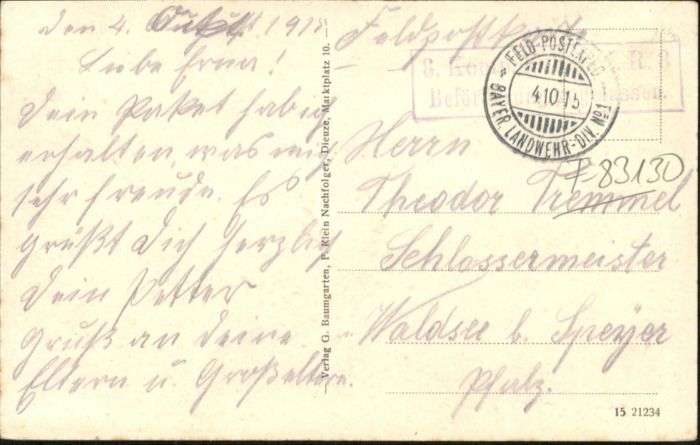 den 4. Oktobr 1915
Liebe Erna!
Dein Paket habe ich
erhalten, was mich
sehr freude. Es
grüßt Dich herzlich
Dein Vetter
Gruß an deine
Eltern u. Großeltern.
Verlag G. Baumgarten, P. Klein Nachfolger, Dieuze, Marktplatz 10.
Feldpostkarte
8. R. 3
Beför lassen.
FELD-POSTEXPED.
4.10.15
BAYER. LANDWEHR-DIV. No 1
F 83130
Herrn
Theodor Tremmel
Schlossermeister
Waldsee b. Speyer
Pfalz.
15 21234